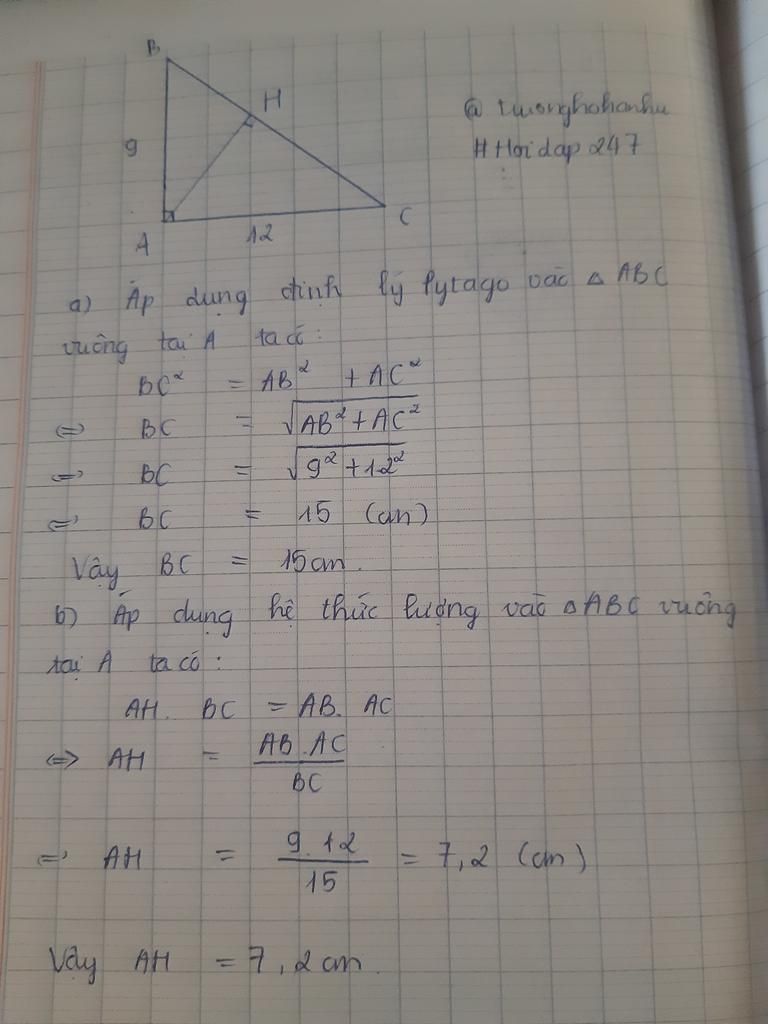 B
H
@ tuonghohanhu
9
# Hoidap 247
C
A
12
a) Áp dụng định lý Pytago vào △ ABC
vuông tại A ta có:
BC² = AB² + AC²
⇔ BC = √AB² + AC²
⇔ BC = √9² + 12²
⇔ BC = 15 (cm)
Vậy BC = 15cm.
b) Áp dụng hệ thức lượng vào △ ABC vuông
tại A ta có:
AH. BC = AB. AC
⇔ AH = AB . AC / BC
⇔ AH = 9. 12 / 15 = 7,2 (cm)
Vậy AH = 7, 2 cm.